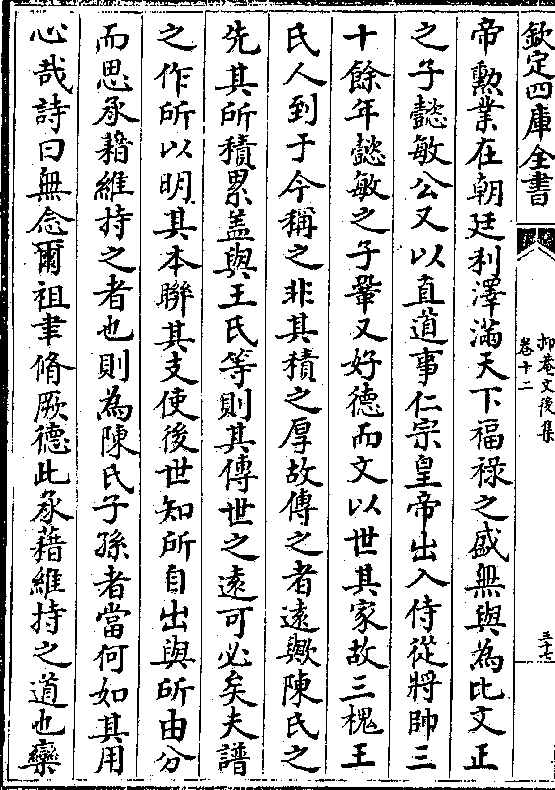 欽定四庫全書
抑菴文後集
卷十二
三十七
帝勲業在朝廷利澤滿天下福祿之盛無與為比文正
之子懿敏公又以直道事仁宗皇帝出入侍從將帥三
十餘年懿敏之子鞏又好德而文以世其家故三槐王
氏人到于今稱之非其積之厚故傳之者遠歟陳氏之
先其所積累盖與王氏等則其傳世之遠可必矣夫譜
之作所以明其本聨其支使後世知所自出與所由分
而思承藉維持之者也則為陳氏子孫者當何如其用
心哉詩曰無念爾祖聿脩厥德此承藉維持之道也欒